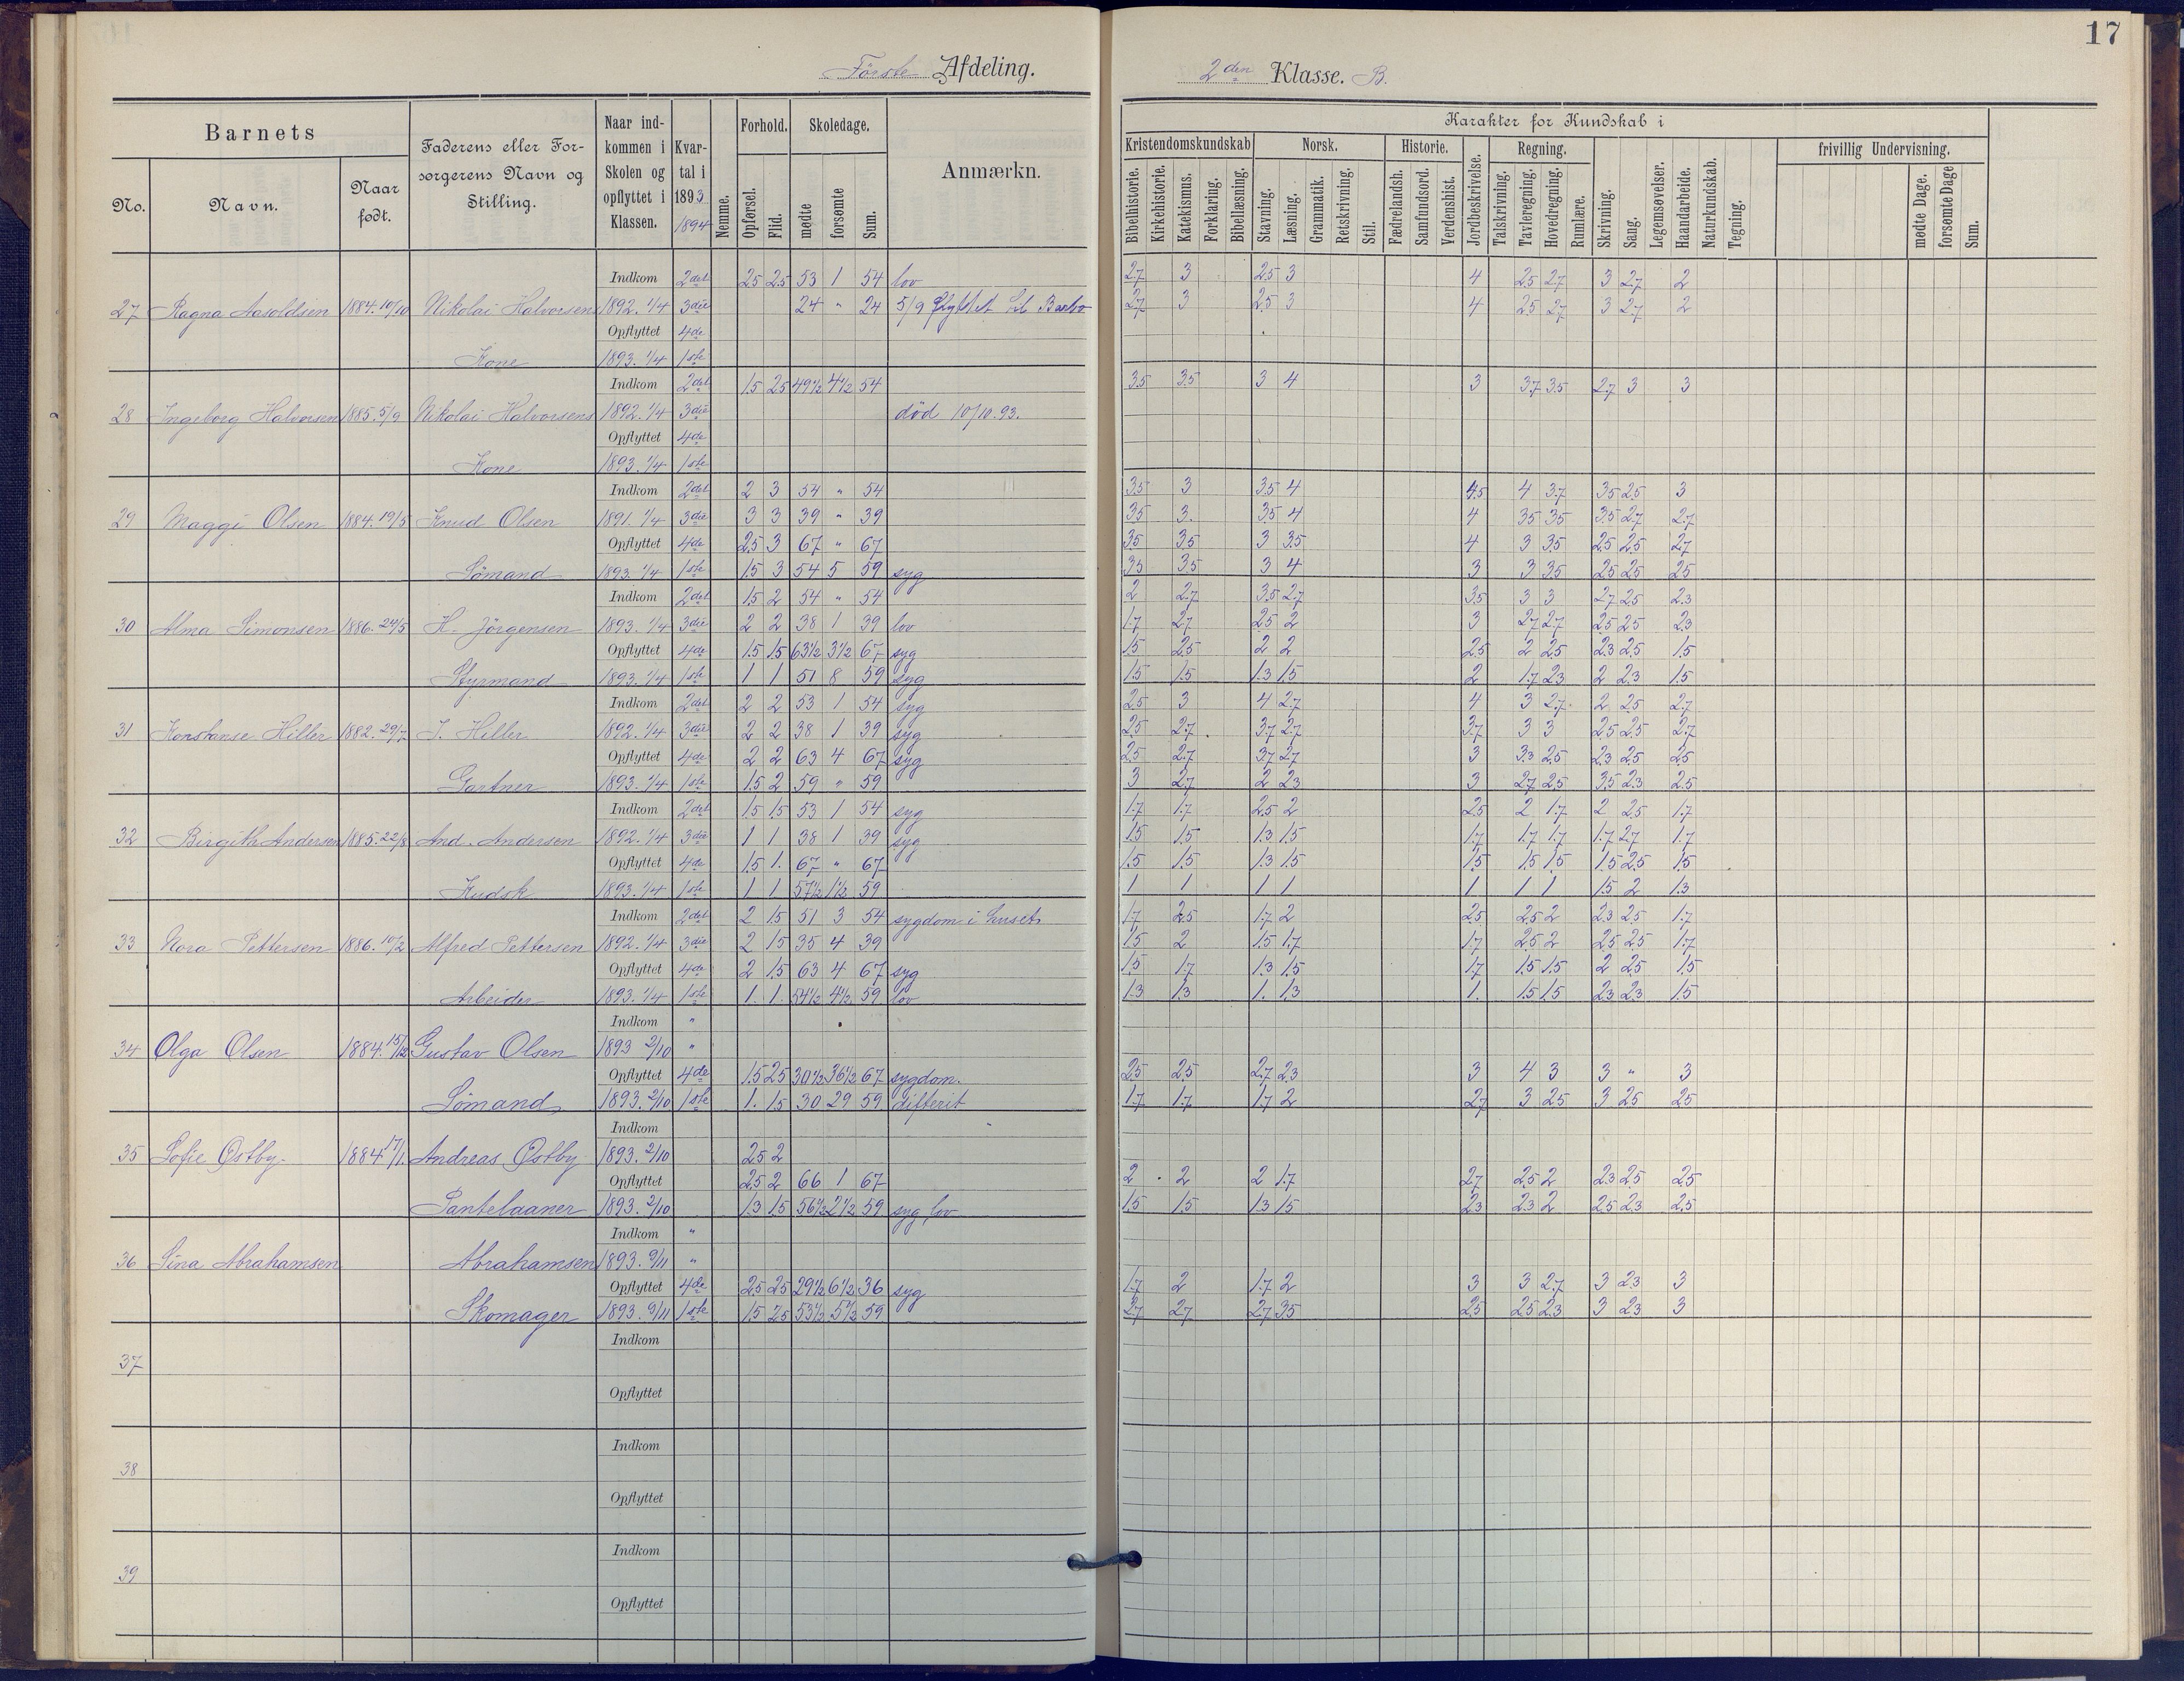 Første Afdeling.
2den Klasse. B.
17
Barnets
No.
Navn.
Naar født.
Faderens eller Forsørgerens Navn og Stilling.
Naar indkommen i Skolen og opflyttet i Klassen.
Kvartal i 1893 1894
Nemme.
Forhold.
Opførsel.
Flid.
Skoledage.
mødte
forsømte
Sum.
Anmærkn.
Karakter for Kundskab i
Kristendomskundskab
Norsk.
Historie.
Regning.
frivillig Undervisning.
Bibelhistorie.
Kirkehistorie.
Katekismus.
Forklaring.
Bibellæsning.
Stavning.
Læsning.
Grammatik.
Retskrivning.
Stil.
Fædrelandsh.
Samfundsord.
Verdenshist.
Jordbeskrivelse.
Talskrivning.
Tavleregning.
Hovedregning.
Rumlære.
Skrivning.
Sang.
Legemsøvelser.
Haandarbeide.
Naturkundskab.
Tegning.
mødte Dage.
forsømte Dage
Sum.
Indkom 2det 2.5 2.5 53 1 54 lov 2.7 3 2.5 3 4 2.5 2.7 3 2.7 2
27 Ragna Aasoldsen 1884. 10/10 Nikolai Halvorsens 1892. 1/4 3die 24 " 24 5/9 flyttet til Barbo 2.7 3 2.5 3 4 2.5 2.7 3 2.7 2
Opflyttet 4de
Kone 1893. 1/4 1ste
Indkom 2det 1.5 2.5 49 1/2 4 1/2 54 3.5 3.5 3 4 3 3.7 3.5 2.7 3 3
28 Ingeborg Halvorsen 1885. 5/9 Nikolai Halvorsens 1892. 1/4 3die død 10/10. 93.
Opflyttet 4de
Kone 1893. 1/4 1ste
Indkom 2det 2 3 54 " 54 3.5 3 3.5 4 4.5 4 3.7 3.5 2.5 3
29 Maggi Olsen 1884. 19/5 Knud Olsen 1891. 1/4 3die 3 3 39 " 39 3.5 3. 3.5 4 4 3.5 3.5 3.5 2.7 2.7
Opflyttet 4de 2.5 3 67 " 67 3.5 3.5 3 3.5 4 3 3.5 2.5 2.5 2.7
Sømand 1893. 1/4 1ste 1.5 3 54 5 59 syg 3.5 3.5 3 4 3 3 3.5 2.5 2.5 2.5
Indkom 2det 1.5 2 54 " 54 2 2.7 3.5 2.7 3.5 3 3 2.7 2.5 2.3
30 Alma Simonsen 1886. 24/5 H. Jörgensen 1893. 1/4 3die 2 2 38 1 39 lov 1.7 2.7 2.5 2 3 2.7 2.7 2.5 2.5 2.3
Opflyttet 4de 1.5 1.5 63 1/2 3 1/2 67 syg 1.5 2.5 2 2 2.5 2 2.5 2.3 2.5 1.5
Styrmand 1893. 1/4 1ste 1 1 51 8 59 syg 1.5 1.5 1.3 1.5 2 1.7 2.3 2 2.3 1.5
Indkom 2det 2 2 53 1 54 syg 2.5 3 4 2.7 4 3 2.7 2 2.5 2.7
31 Konstanse Hiller 1882. 29/7 J. Hiller 1892. 1/4 3die 2 2 38 1 39 syg 2.5 2.7 3.7 2.7 3.7 3 3 2.5 2.5 2.7
Opflyttet 4de 2 2 63 4 67 syg 2.5 2.7 3.7 2.7 3 3.3 2.5 2.3 2.5 2.5
Gartner 1893. 1/4 1ste 1.5 2 59 " 59 3 2.7 2 2.3 3 2.7 2.5 3.5 2.3 2.5
Indkom 2det 1.5 1.5 53 1 54 syg 1.7 1.7 2.5 2 2.5 2 1.7 2 2.5 1.7
32 Birgith Andersen 1885. 22/8 And. Andersen 1892. 1/4 3die 1 1 38 1 39 syg 1.5 1.5 1.3 1.5 1.7 1.7 1.7 1.7 2.7 1.7
Opflyttet 4de 1.5 1. 67 " 67 1.5 1.5 1.3 1.5 1.5 1.5 1.5 1.5 2.5 1.5
Kudsk 1893. 1/4 1ste 1 1 57 1/2 1 1/2 59 1 1 1 1 1 1 1 1.5 2 1.3
Indkom 2det 2 1.5 51 3 54 sygdom i huset 1.7 2.5 1.7 2 2.5 2.5 2 2.3 2.5 1.7
33 Nora Pettersen 1886. 10/2 Alfred Pettersen 1892. 1/4 3die 2 1.5 35 4 39 1.5 2 1.5 1.7 1.7 2.5 2 2.5 2.5 1.7
Opflyttet 4de 2 1.5 63 4 67 syg 1.5 1.7 1.3 1.5 1.7 1.5 1.5 2 2.5 1.5
Arbeider 1893. 1/4 1ste 1. 1. 54 1/2 4 1/2 59 lov 1.3 1.3 1. 1.3 1. 1.5 1.5 2.3 2.3 1.5
Indkom "
34 Olga Olsen 1884. 15/12 Gustav Olsen 1893 2/10 "
Opflyttet 4de 1.5 2.5 30 1/2 36 1/2 67 sygdom. 2.5 2.5 2.7 2.3 3 4 3 3 " 3
Sömand 1893. 2/10 1ste 1. 1.5 30 29 59 difterit 1.7 1.7 1.7 2 2.7 3 2.5 3 2.5 2.5
Indkom
35 Sofie Østby. 1884. 17/1. Andreas Østby 1893. 2/10 2.5 2
Opflyttet 2.5 2 66 1 67 2 2 2 1.7 2.7 2.5 2 2.3 2.5 2.5
Pantelaaner 1893. 2/10 1.3 1.5 56 1/2 2 1/2 59 syg lov 1.5 1.5 1.3 1.5 2.3 2.3 2 2.5 2.3 2.5
Indkom "
36 Sina Abrahamsen Abrahamsen 1893. 9/11 "
Opflyttet 4de 2.5 2.5 29 1/2 6 1/2 36 syg 1.7 2 1.7 2 3 3 2.7 3 2.3 3
Skomager 1893. 9/11 1ste 1.5 2.5 53 1/2 5 1/2 59 2.7 2.7 2.7 3.5 2.5 2.5 2.3 3 2.3 3
Indkom
37
Opflyttet
Indkom
38
Opflyttet
Indkom
39
Opflyttet